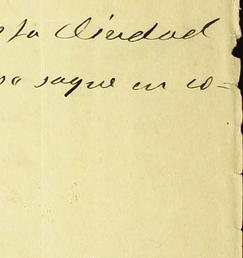 esta Ciudad
se saque en co-